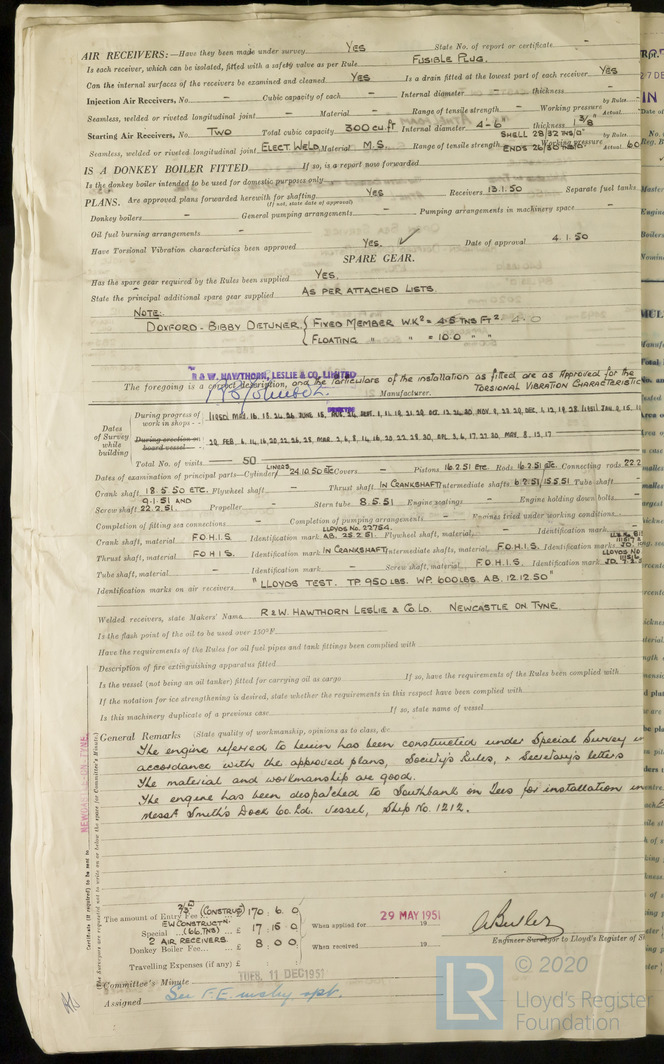 AIR RECEIVERS:—Have they been made under survey YES State No. of report or certificate -
Is each receiver, which can be isolated, fitted with a safety valve as per Rule FUSIBLE PLUG.
Can the internal surfaces of the receivers be examined and cleaned YES Is a drain fitted at the lowest part of each receiver YES
Injection Air Receivers, No. - Cubic capacity of each - Internal diameter - thickness -
Seamless, welded or riveted longitudinal joint - Material - Range of tensile strength - Working pressure by Rules - Actual -
Starting Air Receivers, No. TWO Total cubic capacity 300 cu ft Internal diameter 4-6" thickness 1 3/8"
Seamless, welded or riveted longitudinal joint ELECT WELD Material M.S. Range of tensile strength SHELL 28/32 TNS/□" ENDS 26/30 TNS/□" Working pressure by Rules Actual 60
IS A DONKEY BOILER FITTED If so, is a report now forwarded
Is the donkey boiler intended to be used for domestic purposes only
PLANS. Are approved plans forwarded herewith for shafting YES Receivers 13.1.50 Separate fuel tanks -
(If not, state date of approval)
Donkey boilers - General pumping arrangements - Pumping arrangements in machinery space -
Oil fuel burning arrangements -
Have Torsional Vibration characteristics been approved YES. ✓ Date of approval 4.1.50
SPARE GEAR.
Has the spare gear required by the Rules been supplied YES.
State the principal additional spare gear supplied AS PER ATTACHED LISTS
NOTE:-
DOXFORD-BIBBY DETUNER { FIXED MEMBER WK² = 4.5 TNS FT² 4.0
FLOATING " " = 10.0 " "
R & W. HAWTHORN, LESLIE & CO. LIMITED
The foregoing is a correct description, and the particulars of the installation as fitted are as approved for the
TORSIONAL VIBRATION CHARACTERISTIC
Manufacturer.
Dates of Survey while building
During progress of work in shops - -
During erection on board vessel - -
Total No. of visits 50
Dates of examination of principal parts—Cylinders LINERS 24.10.50 ETC Covers - Pistons 16.2.51 ETC. Rods 16.2.51 ETC. Connecting rods 22.2
Crank shaft 18.5.50 ETC. Flywheel shaft - Thrust shaft IN CRANKSHAFT Intermediate shafts 6.2.51, 15.5.51 Tube shaft -
Screw shaft 9.1.51 AND 22.2.51. Propeller - Stern tube 8.5.51 Engine seatings - Engine holding down bolts -
Completion of fitting sea connections - Completion of pumping arrangements - Engines tried under working conditions -
Crank shaft, material F.O.H.I.S. Identification mark LLOYDS No. 22754. A.B. 25.2.51. Flywheel shaft, material - Identification mark -
Thrust shaft, material F.O.H.I.S. Identification mark IN CRANKSHAFT Intermediate shafts, material F.O.H.I.S. Identification marks
Tube shaft, material - Identification mark - Screw shaft, material F.O.H.I.S. Identification mark LLOYDS NO
Identification marks on air receivers "LLOYDS TEST. TP 950 LBS. WP. 600 LBS. A.B. 12.12.50"
Welded receivers, state Makers' Name R & W. HAWTHORN LESLIE & CO. LD. NEWCASTLE ON TYNE.
Is the flash point of the oil to be used over 150°F.
Have the requirements of the Rules for oil fuel pipes and tank fittings been complied with
Description of fire extinguishing apparatus fitted
Is the vessel (not being an oil tanker) fitted for carrying oil as cargo If so, have the requirements of the Rules been complied with
If the notation for ice strengthening is desired, state whether the requirements in this respect have been complied with
Is this machinery duplicate of a previous case If so, state name of vessel
General Remarks (State quality of workmanship, opinions as to class, &c.
The engine referred to herein has been constructed under Special Survey in
accordance with the approved plans, Society's Rules, & Secretary's letters
The material and workmanship are good.
The engine has been despatched to Southbank on Tees for installation in
Messrs Smith's Dock Co. Ld. Vessel, Ship No. 1212.
NEWCASTLE-ON-TYNE.
Certificate (if required) to be sent to
(The Surveyors are requested not to write on or below the space for Committee's Minute.)
The amount of Entry Fee (CONSTRUC) 170 : 6. 0
E.W CONSTRUCTN. Special (66 TNS) ... £ 17 : 15. 0
2 AIR RECEIVERS. Donkey Boiler Fee... £ 8 : 0. 0
Travelling Expenses (if any) £ : :
When applied for 29 MAY 1951 19
When received 19
Engineer Surveyor to Lloyd's Register of S
Committee's Minute TUES. 11 DEC 1951
Assigned See F.E. mchy rpt.
LR © 2020
Lloyd's Register
Foundation